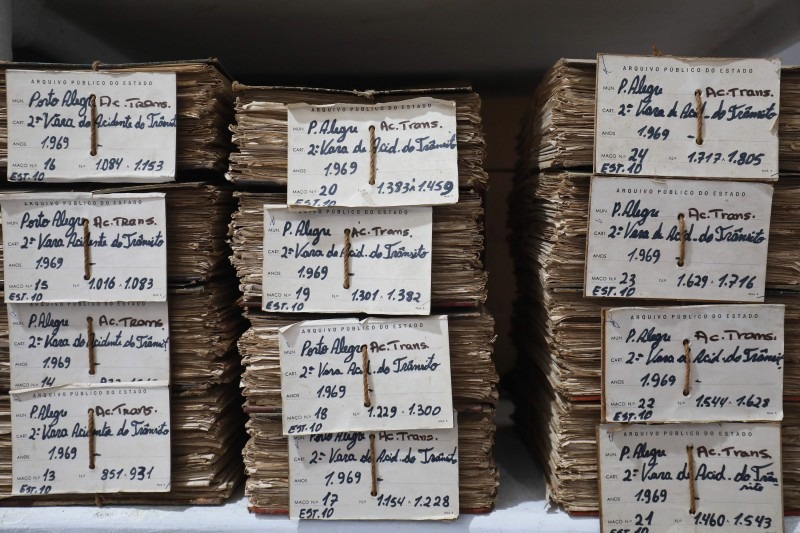 ARQUIVO PÚBLICO DO ESTADO
MUN. Porto Alegre Ac. Trans.
CART. 2ª Vara de Acidente do Trânsito
ANOS 1.969
MAÇO N.º 16 N.os 1.084 - 1.153
EST. 10
Porto Alegre Ac. Trans.
CART. 2ª Vara Acidente do Trânsito
ANOS 1.969
MAÇO N.º 15 N.os 1.016 - 1.083
EST. 10
MUN. P. Alegre Ac. Trans.
CART. 2ª Vara de Acidente do Trânsit
ANOS 1.969
14
MUN. P. Alegre Ac. Trans.
CART. 2ª Vara de Acidente do Trânsito
ANOS 1.969
MAÇO N.º 13 N.os 851 - 931
EST. 10
ARQUIVO PÚBLICO DO ESTADO
MUN. P. Alegre Ac. Trans.
CART. 2ª Vara de Acid. do Trânsito
ANOS 1.969
MAÇO N.º 20 N.os 1.383 à 1.459
EST. 10
MUN. P. Alegre Ac. Trans.
CART. 2ª Vara d Acid. do Trânsito
ANOS 1.969
MAÇO N.º 19 N.os 1.301 - 1.382
EST. 10
ARQUIVO PÚBLICO DO ESTADO
MUN. Porto Alegre Ac Trans.
CART. 2ª Vara de Acid. do Trânsito
ANOS 1.969
MAÇO N.º 18 N.os 1.229 - 1.300
EST. 10
MUN. Porto Alegre Ac. Trans.
CART. 2ª Vara de Acid. do Trânsito
ANOS 1.969
MAÇO N.º 17 N.os 1.154 - 1.228
EST. 10
ARQUIVO PÚBLICO DO ESTADO
MUN. P. Alegre Ac. Trans.
CART. 2ª Vara d Acid. do Trânsito
ANOS 1.969 -
MAÇO N.º 24 N.os 1.717 - 1.805
EST. 10
MUN. P. Alegre Ac. Trans.
CART. 2ª Vara d Acid. do Trânsito
ANOS 1.969 -
MAÇO N.º 23 N.os 1.629 - 1.716
EST. 10
ARQUIVO PÚBLICO DO ESTADO
MUN. P. Alegre Ac. Trans.
CART. 2ª Vara d Acid. do Trânsito
ANOS 1.969 -
MAÇO N.º 22 N.os 1.544 - 1.628
EST. 10
ARQUIVO PÚBLICO DO ESTADO
MUN. P. Alegre Ac. Trans.
CART. 2ª Vara d Acid. do Trân-
sito
ANOS 1969
MAÇO N.º 21 N.os 1.460 - 1.543
EST. 10